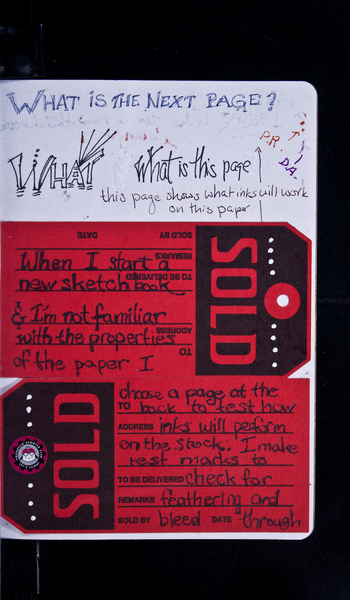 WHAT IS THE NEXT PAGE?
WHAT
What is this page
this page shows what inks will work
on this paper
DATE
SOLD BY
REMARKS
TO BE DELIVERED
ADDRESS
TO
SOLD
When I start a
new sketch book
& I'm not familiar
with the properties
of the paper I
SOLD
choose a page at the
TO back to test how
ADDRESS inks will perform
on the stock. I make
test marks to
TO BE DELIVERED check for
REMARKS feathering and
SOLD BY bleed DATE through